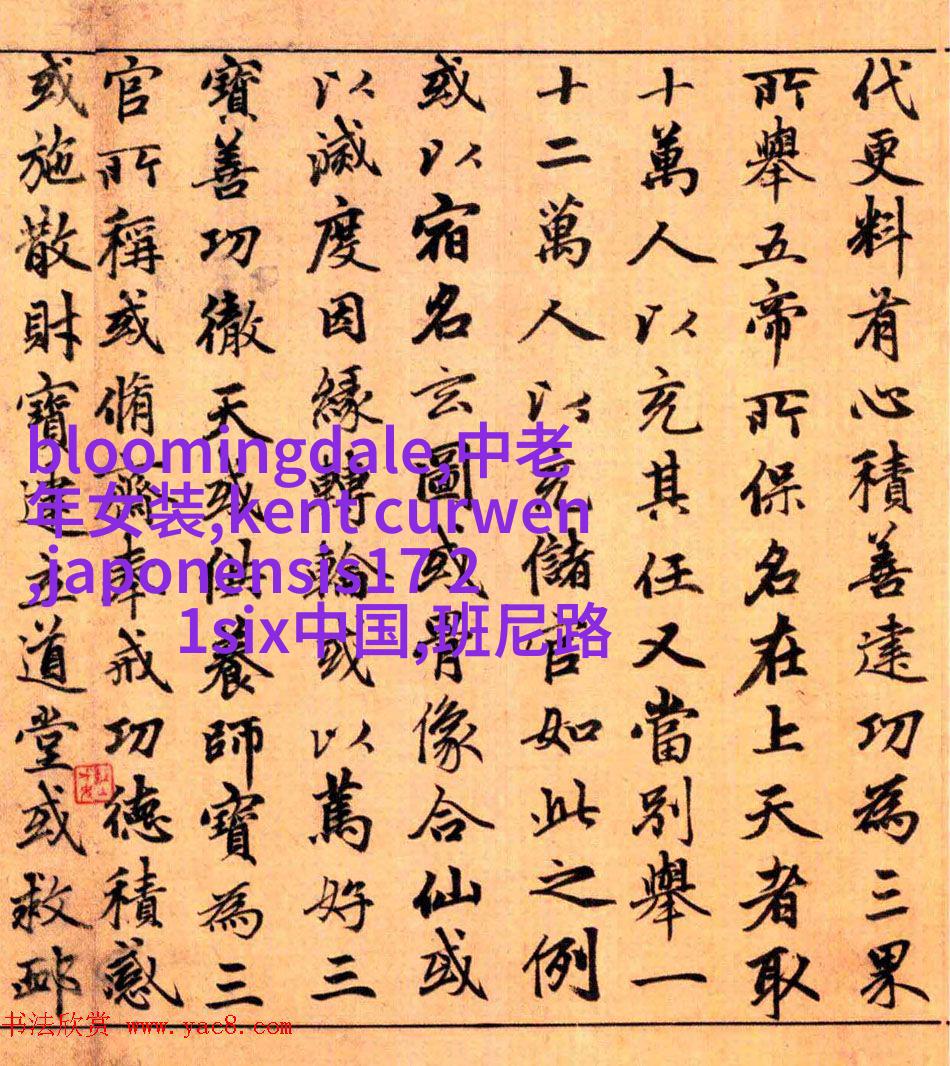 代更料有心積善建功為三界
所舉五帝所保名在上天者取
十萬人以充其任又當別舉一
十二萬人以充儲官如此之例
或以宿名玄圖或骨像合仙或
以滅度因緣轉輪或以篤好三
寶善功徹天或供養師寶為三
官所稱或脩齋奉戒功德積感
或施散財寶建立道堂或救邺
bloomingdale,中老
年女装,kent curwen
,japonensis17 2
1six中国,班尼路
书法欣赏 www.yac8.com